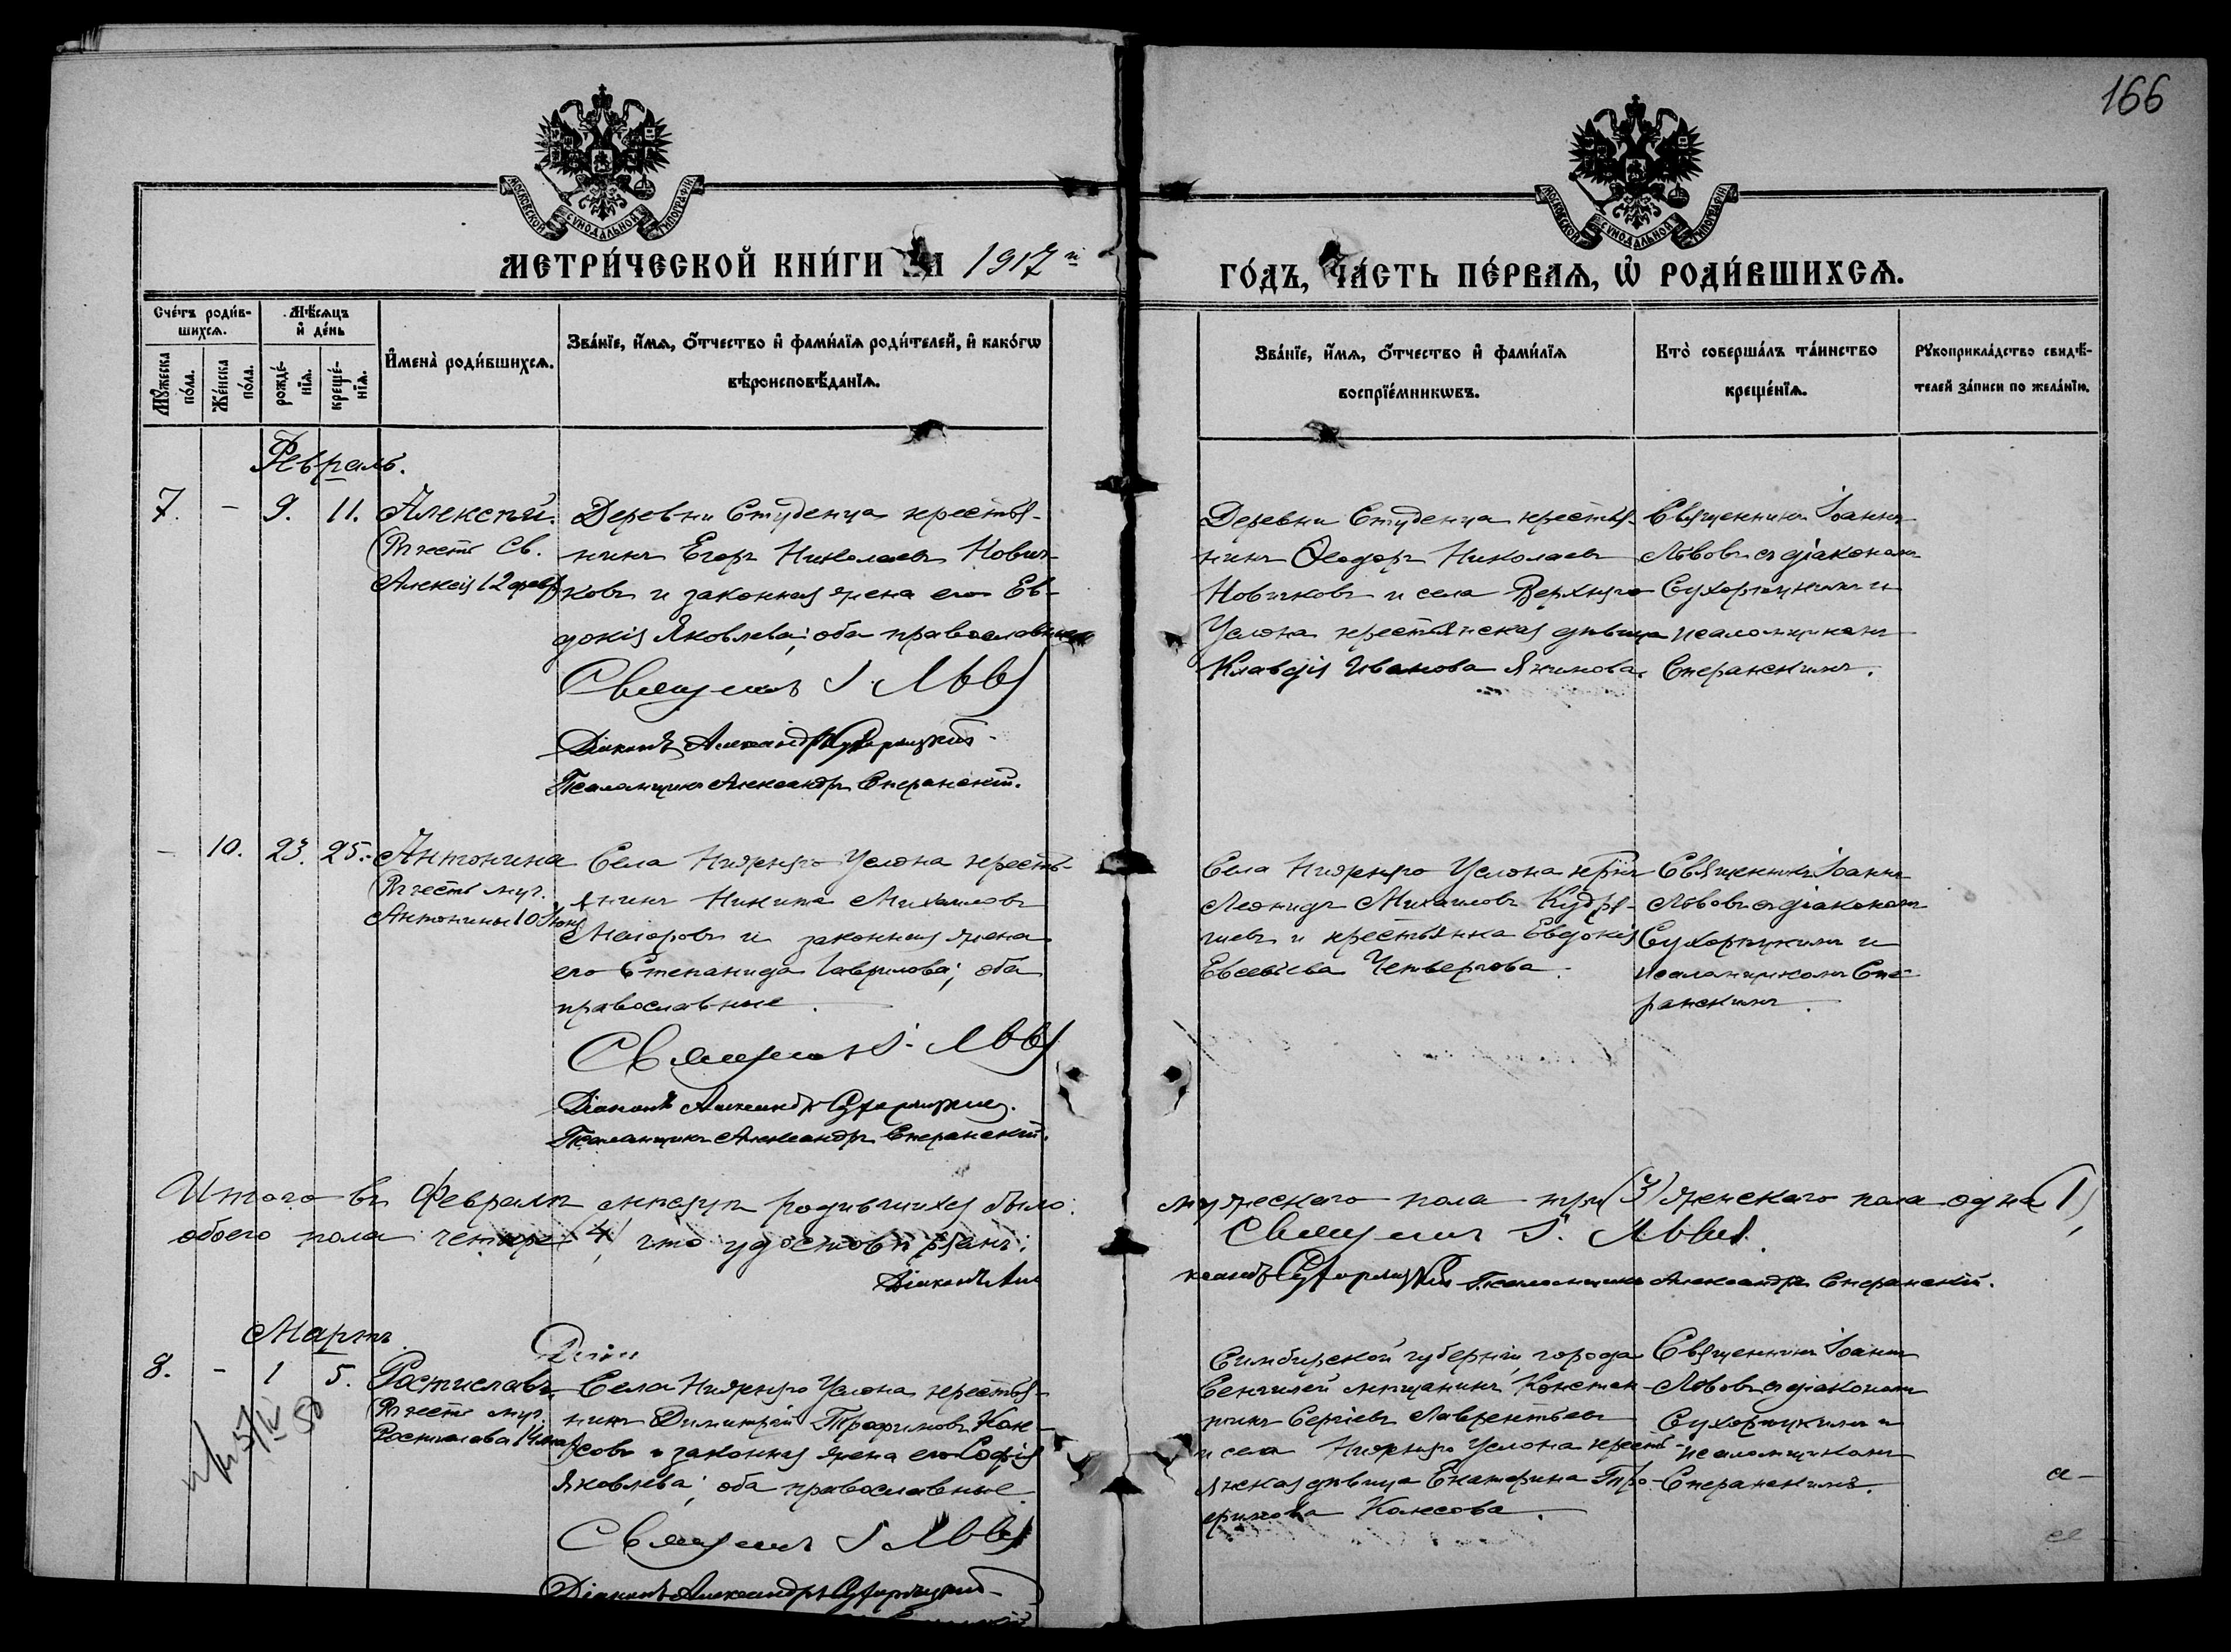 166
МОСКОВСКОЙ СѴНОДАЛЬНОЙ ТИПОГРАФІИ
МОСКОВСКОЙ СѴНОДАЛЬНОЙ ТИПОГРАФІИ
МЕТРИ́ЧЕСКОЙ КНИ́ГИ ЗА 1917 й
ГО́ДЪ, ЧА́СТЬ ПЕ́РВАѦ, Ѡ҆ РОДИ́ВШИХСѦ.
Сче́тъ роди́в-
шихсѧ.
Мѣ́сѧцъ
и҆ де́нь
Мꙋ́жеска по́ла.
Же́нска по́ла.
рожде́-
нїѧ.
креще́-
нїѧ.
И҆мена̀ роди́вшихсѧ.
Зва́нїе, и҆́мѧ, ѻ҆́тчество и҆ фами́лїѧ роди́телей, и҆ како́гѡ
вѣроисповѣ́данїѧ.
Зва́нїе, и҆́мѧ, ѻ҆́тчество и҆ фами́лїѧ
воспрїе́мникѡвъ.
Кто̀ соверша́лъ та́инство
креще́нїѧ.
Рꙋкоприкла́дство свидѣ́-
телей за́писи по жела́нїю.
Февраль.
7. - 9. 11. Алексѣй.
Въ честь Св.
Алексія 12 февр.
Деревни Студенца крестья-
нинъ Егоръ Николаевъ Нович-
ковъ и законная жена его Ев-
докія Яковлева; оба православные
Священникъ І. Львовъ
Діаконъ Александръ Сухоруцкий
Псаломщикъ Александръ Сперанскій.
Деревни Студенца крестья-
нинъ Ѳеодоръ Николаевъ
Новичковъ и села Верхняго
Услона крестьянская дѣвица
Клавдія Иванова Якимова.
Священникъ Іоаннъ
Львовъ съ діакономъ
и
псаломщикомъ
Сперанскимъ.
- 10. 23. 25. Антонина
Въ честь муч.
Антонины 10 Іюня
Села Нижняго Услона кресть-
янинъ Никита Михаиловъ
Маіоровъ и законная жена
его Степанида Гаврилова; оба
православные.
Священникъ І. Львовъ
Діаконъ Александръ
Псаломщикъ Александръ Сперанскій.
Села Нижняго Услона кр-нъ
Леонидъ Михаиловъ Кудря-
шевъ и крестьянка Евдокія
Евсевіева Четвергова.
Священникъ Іоаннъ
Львовъ съ діакономъ
и
псаломщикомъ Спе-
ранскимъ.
Итого въ Февралѣ мѣсяцѣ родившихся было:
мужескаго пола три (3) женскаго пола одна (1),
обоего пола четыре (4), что удостовѣряемъ:
Священникъ І. Львовъ.
Псаломщикъ Александръ Сперанскій.
Мартъ.
8. - 1 5. Ростиславъ.
Въ честь муч.
Ростислава 14 мар.
Села Нижняго Услона крестья-
нинъ Димитрій Трофимовъ Кон-
совъ и законная жена его Софія
Яковлева; оба православные.
Священникъ І. Львовъ
Діаконъ Александръ
Симбирской губерніи, города
Сенгилей мѣщанинъ Констан-
тинъ Сергіевъ Лаврентьевъ
и села Нижняго Услона кресть-
янская дѣвица Екатерина Тро-
фимова
Священникъ Іоаннъ
Львовъ съ діакономъ
и
псаломщикомъ
Сперанскимъ.